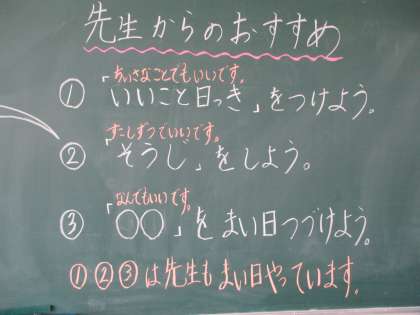 先生からのおすすめ
ちいさなことでもいいです。
①「いいこと日っき」をつけよう。
すこしずつでいいです。
②「そうじ」をしよう。
なんでもいいです。
③「〇〇」をまい日つづけよう。
①②③は先生もまい日やっています。